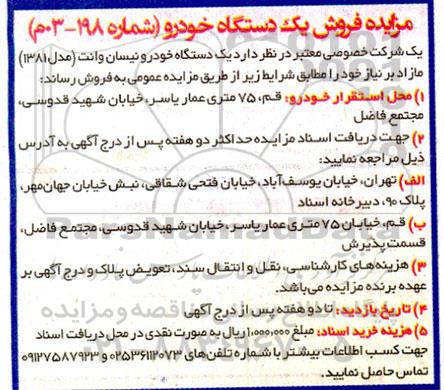 مزایده فروش یک دستگاه خودرو (شماره ۱۹۸-۰۳-م)
یک شرکت خصوصی معتبر در نظر دارد یک دستگاه خودرو نیسان وانت (مدل ۱۳۸۱)
مازاد بر نیاز خود را مطابق شرایط زیر از طریق مزایده عمومی به فروش رساند:
۱) محل استقرار خودرو: قم، ۷۵ متری عمار یاسر، خیابان شهید قدوسی،
مجتمع فاضل
۲) جهت دریافت اسناد مزایده حداکثر دو هفته پس از درج آگهی به آدرس
ذیل مراجعه نمایید:
الف) تهران، خیابان یوسف‌آباد، خیابان فتحی شقاقی، نبش خیابان جهان‌مهر،
پلاک ۹۰، دبیرخانه اسناد
ب) قم، خیابان ۷۵ متری عمار یاسر، خیابان شهید قدوسی، مجتمع فاضل،
قسمت پذیرش
۳) هزینه‌های کارشناسی، نقل و انتقال سند، تعویض پلاک و درج آگهی بر
عهده برنده مزایده می‌باشد.
۴) تاریخ بازدید: تا دو هفته پس از درج آگهی
۵) هزینه خرید اسناد: مبلغ ۱,۰۰۰,۰۰۰ ریال به صورت نقدی در محل دریافت اسناد
جهت کسب اطلاعات بیشتر با شماره تلفن‌های ۰۲۵۳۶۱۱۲۰۷۳ و ۰۹۱۲۷۵۸۷۹۲۳
تماس حاصل نمایید.